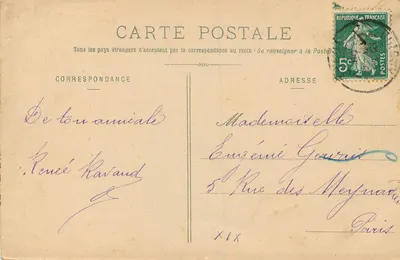 CARTE POSTALE
Tous les pays étrangers n'acceptent pas la correspondance au recto (Se renseigner à la Poste)
CORRESPONDANCE
ADRESSE
RÉPUBLIQUE FRANÇAISE
5c
POSTES
De ton amicale
Renée Ravaud
Mademoiselle
Eugénie
5 Rue des
Paris
XIX